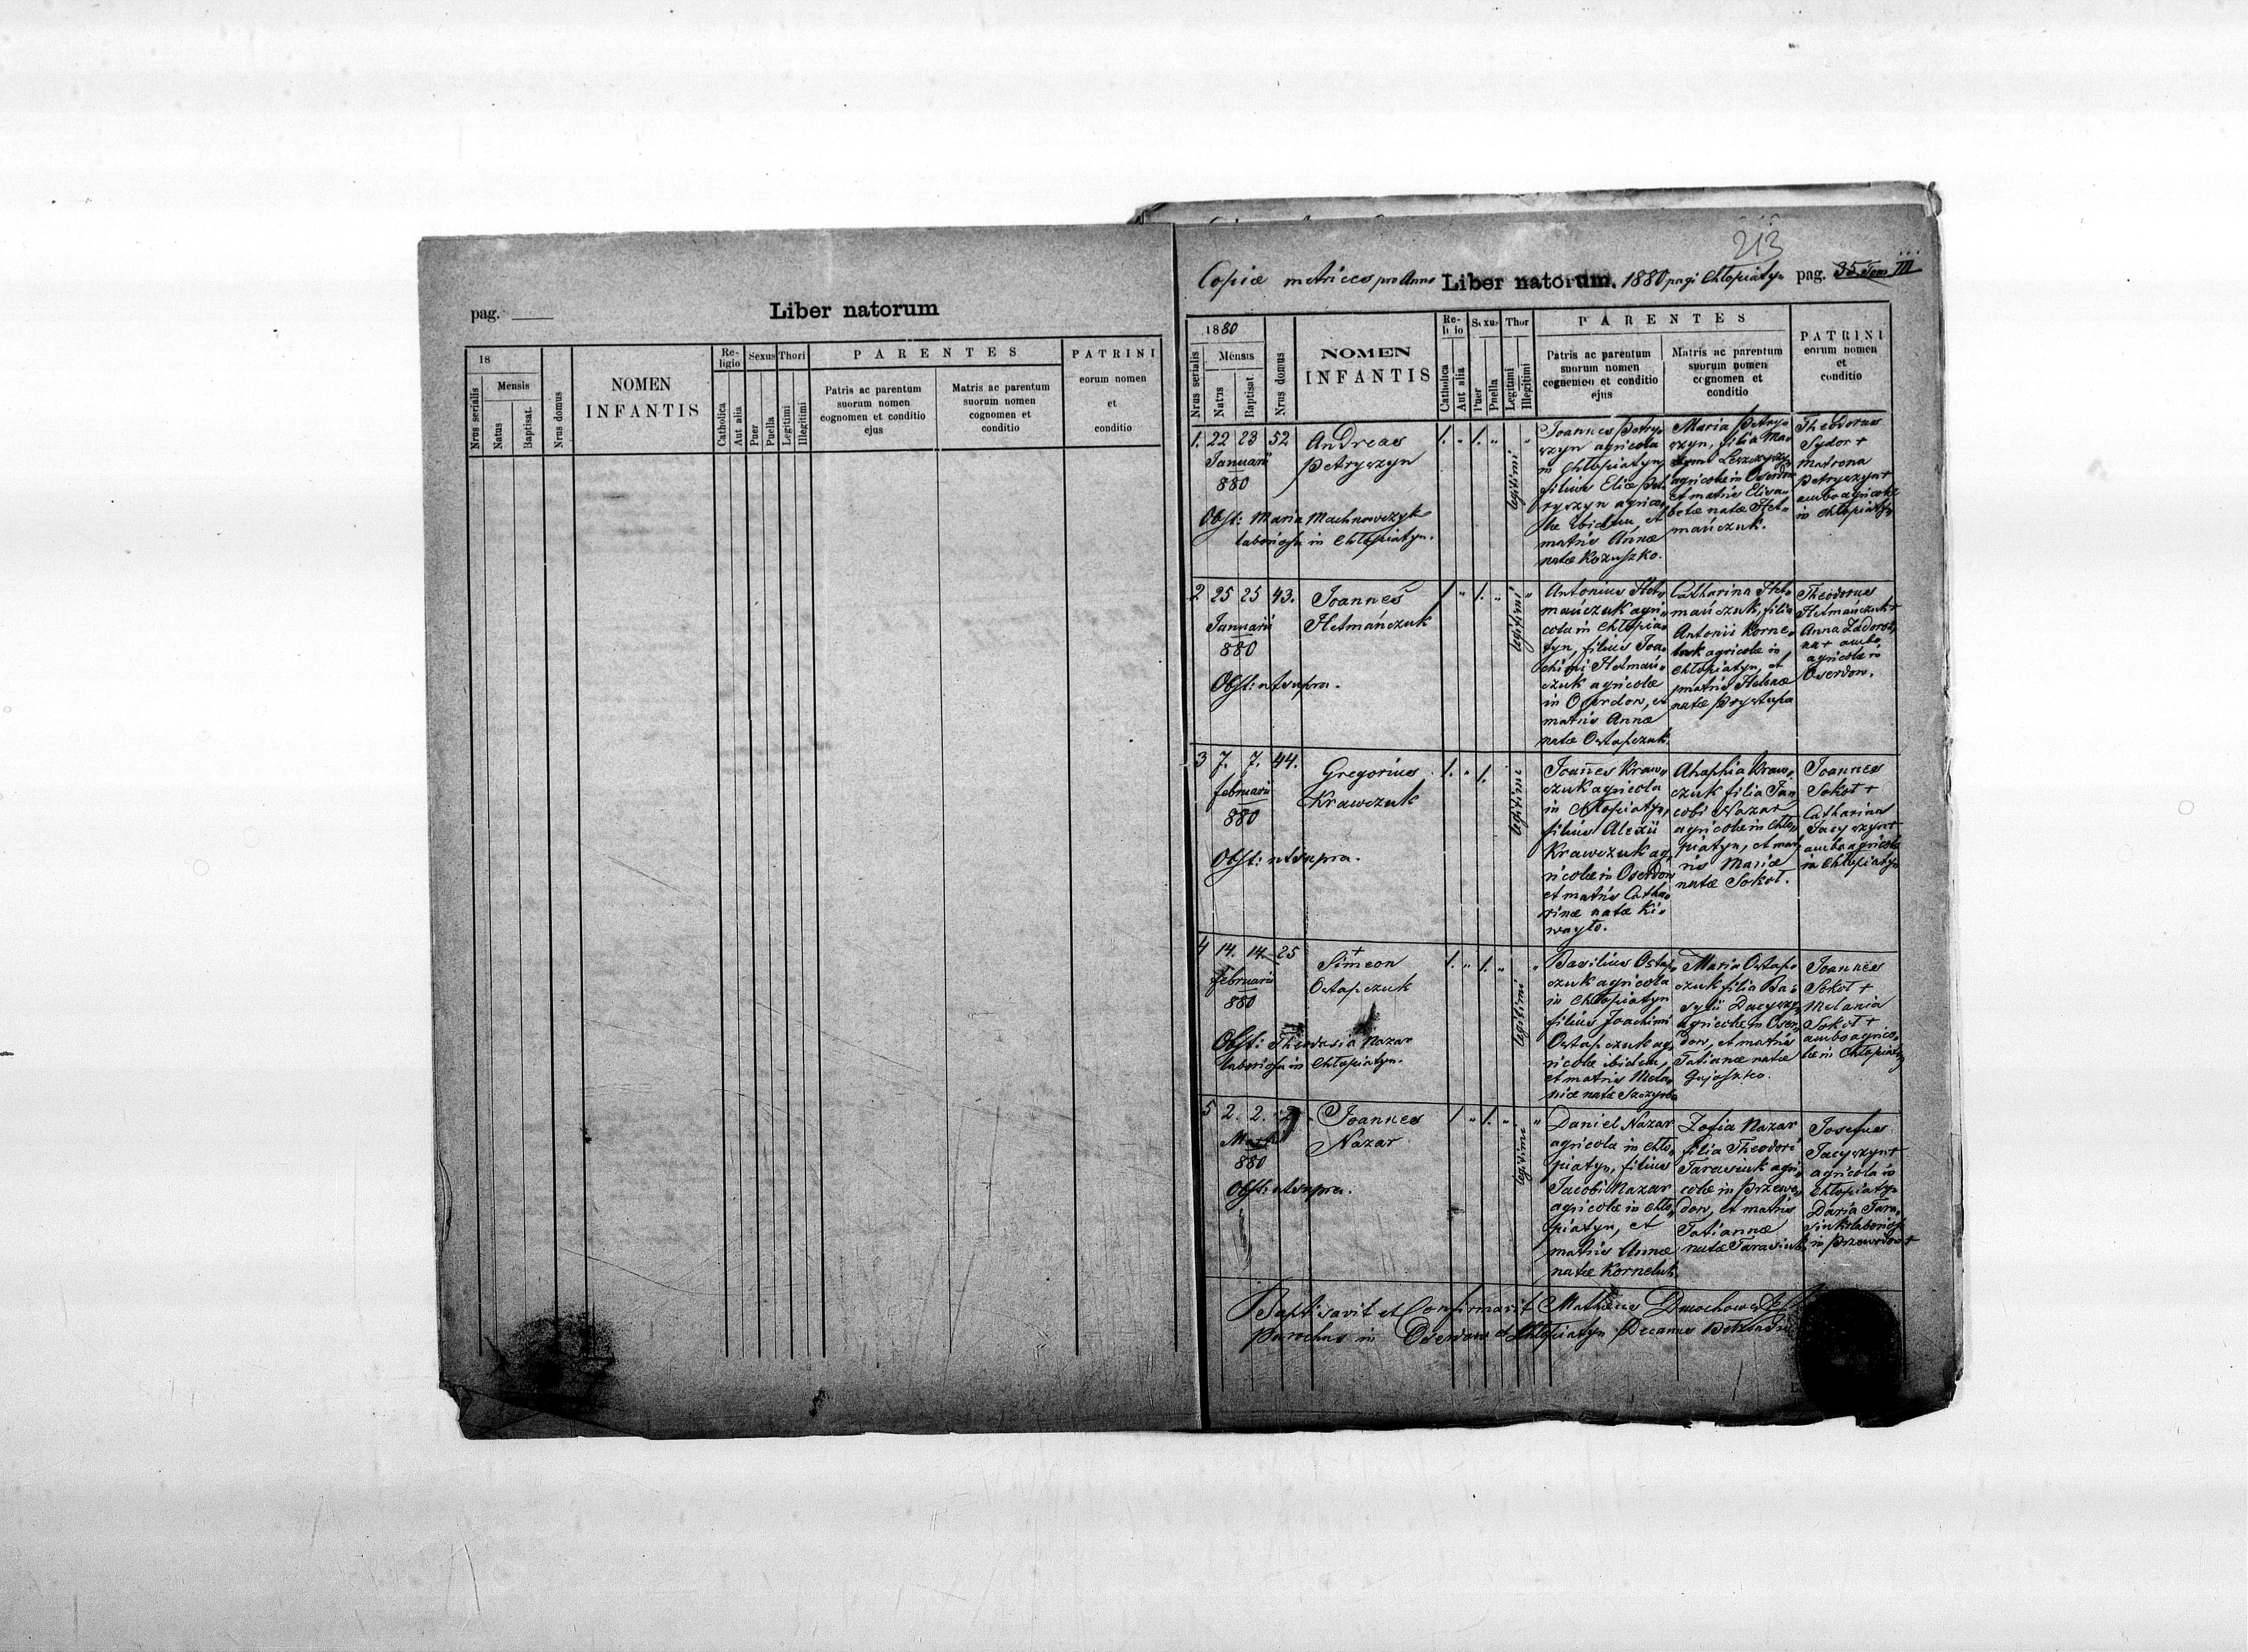 pag.
Liber natorum
18
Mensis
Nrus serialis
Natus
Baptisat.
Nrus domus
NOMEN
INFANTIS
Re-
ligio
Sexus
Thori
Catholica
Aut alia
Puer
Puella
Legitimi
Illegitimi
PARENTES
Patris ac parentum
suorum nomen
cognomen et conditio
ejus
Matris ac parentum
suorum nomen
cognomen et
conditio
PATRINI
eorum nomen
et
conditio
213
Copiæ metrices pro Anno Liber natorum. 1880 pagi Chłopiatyn pag. 35 Tom III
1880
Mensis
Nrus serialis
Natus
Baptisat.
Nrus domus
NOMEN
INFANTIS
Catholica
Aut alia
Puer
Puella
Legitimi
Illegitimi
PARENTES
Patris ac parentum
suorum nomen
cognomen et conditio
ejus
Matris ac parentum
suorum nomen
cognomen et
conditio
PATRINI
eorum nomen
et
conditio
1. 22 23 52
Januarii
880
Andreas
Petryszyn
1. " 1. " legitimi "
Obst: Maria Machnowczyk
laboriosa in Chłopiatyn.
Joannes Petry-
szyn agricola
in Chłopiatyn,
filius Eliæ Pet-
ryszyn agrico-
læ ibidem, et
matris Annæ
natæ Kozuszko.
Maria Petry-
szyn, filia
agricolæ in Oserdow
et matris Elisa-
betæ natæ Het-
mańczuk.
Theodorus
Sydor +
Matrona
Petryszyn +
ambo agricolæ
in Chłopiatyn
2 25 25 43.
Januarii
880
Joannes
Hetmańczuk
1 " 1. " legitimi "
Obst: ut supra.
Antonius Het-
mańczuk agri-
cola in Chłopia-
tyn, filius Joa-
chimi Hetmań-
czuk agricolæ
in Oserdow, et
matris Annæ
natæ Ostapczuk.
Catharina Het-
mańczuk, filia
Antonii Korne-
luk agricolæ in
Chłopiatyn, et
matris Helenæ
natæ Prystupa
Theodorus
Hetmańczuk +
Anna
ambo
agricolæ in
Oserdow.
3 7. 7. 44.
februarii
880
Gregorius
Krawczuk
1. " 1. legitimi
Obst: ut supra.
Joannes Kraw-
czuk agricola
in Chłopiatyn,
filius Alexii
Krawczuk ag-
ricolæ in Oserdow
et matris Catha-
rinæ natæ Ki-
wayło.
Ahaphia Kraw-
czuk filia Ja-
cobi Nazar
agricolæ in Chło-
piatyn, et mat-
ris Mariæ
natæ Sokoł.
Joannes
Sokoł +
Catharina
Jacyszyn +
ambo agricolæ
in Chłopiatyn
4 14. 14. 25
februarii
880
+
Simeon
Ostapczuk
1. " 1. " legitimi "
Obst: Theodosia Nazar
laboriosa in Chłopiatyn.
Basilius Ostap-
czuk agricola
in Chłopiatyn
filius Joachimi
Ostapczuk ag-
ricolæ ibidem,
et matris Mela-
niæ natæ
Maria Ostap-
czuk filia Ba-
sylii
agricolæ in Oser-
dow, et matris
Tatianæ natæ
Joannes
Sokoł +
Melania
Sokoł +
ambo agrico-
læ in Chłopiatyn
5 2. 2.
880
Joannes
Nazar
1 " 1. " legitimi "
Obst: ut supra.
Daniel Nazar
agricola in Chło-
piatyn, filius
Jacobi Nazar
agricolæ in Chło-
piatyn, et
matris Annæ
natæ Korneluk.
Zofia Nazar
filia Theodori
Tarasiuk agri-
colæ in Przewo-
dow, et matris
Tatiannæ
natæ Tarasiuk
Josefus
Jacyszyn +
agricola in
Chłopiatyn
Daria Tara-
siuk laboriosa
in Przewodow +
Baptisavit et Confirmavit Matheus
Parochus in Oserdow et Chłopiatyn Decanus